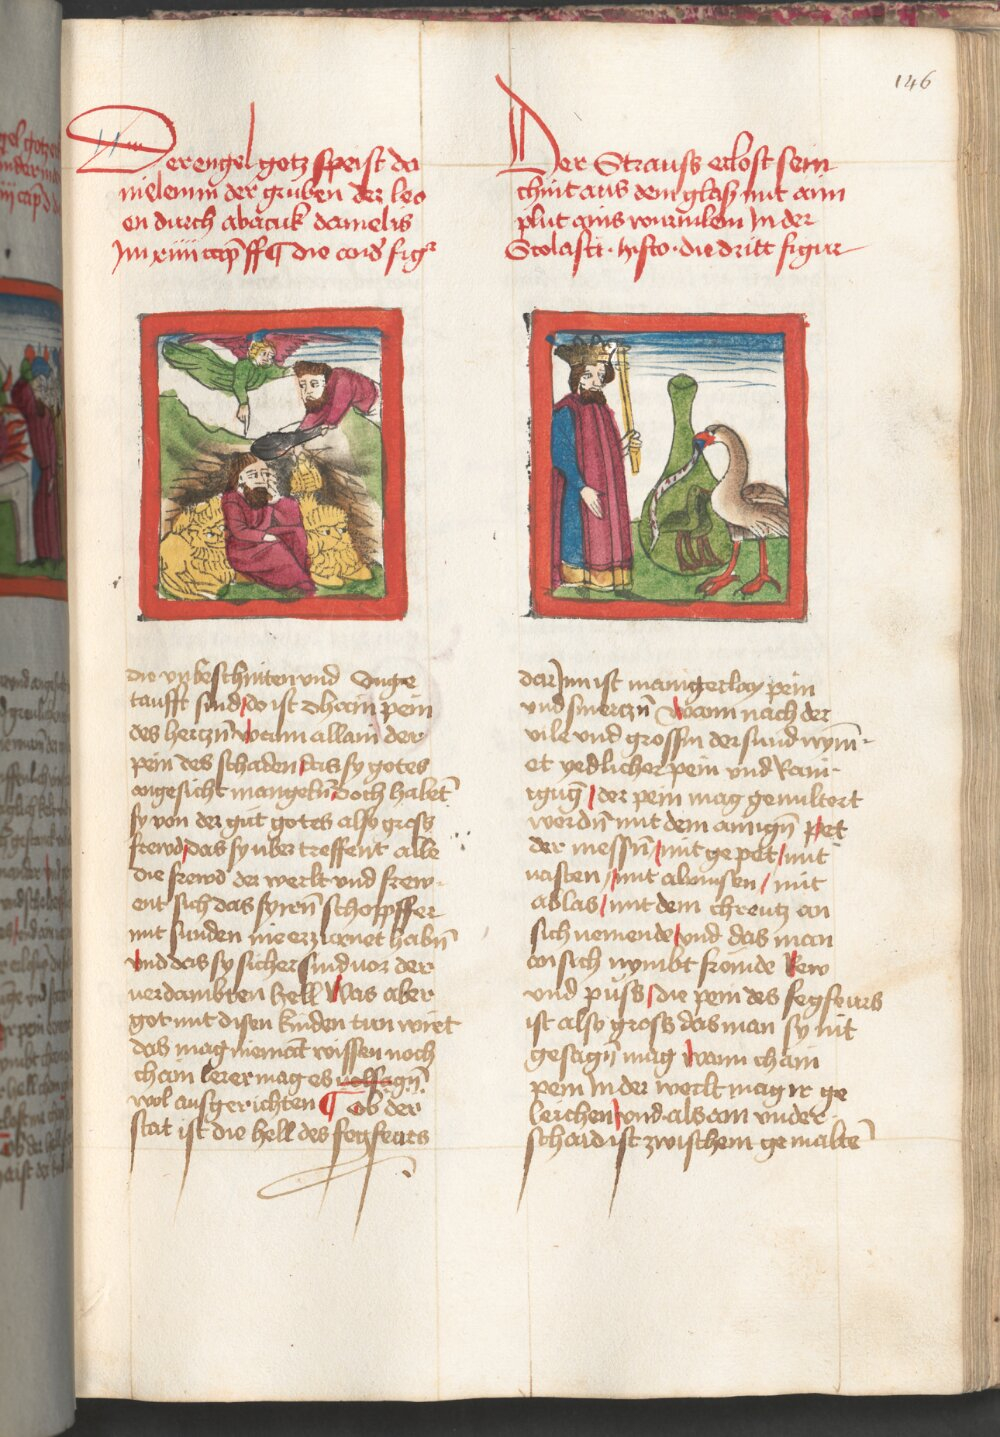 146
Der engel gotz speist da
nielem in der gruben der leo
en durch abacuk danielis
Im xiiii cap ff¶ die and fig
Der Strauss erlost sein
chint aus dem glas mit aim
plut ains wurmlem In der
Scolasti · histo · die dritt figur
die vnbeschniten vnd Onge
taufft sind do ist dhain pein
des hertzn wann allain der
pein des schaden das sy gotes
angesicht mangeln Doch habet
sy von der güt gotes also gross
frewd das sy vber treffent alle
die frewd der werlt vnd frew
ent sich das sy irn schopffer
mit sunden nie erzurnet habn
vnd das sy sicher sind vor der
verdambten hell Was aber
got mit disen kinden tun wirt
das mag niemat wissen noch
chain lerer mag es volsagn
wol ausgerichten ¶ Ob der
stat ist die hell des fegfeurs
dar Inn ist manigerlay pein
vnd smertzn Wann nach der
vile vnd grossin der sund nym
et yedlicher pein vnd Raini
gug der pein mag gemiltert
werdn mit dem ainign pet
der messn mit gepet mit
vasten mit almusen mit
ablas mit dem chreutz an
sich nemende vnd das man
an sich nymbt fromde Rew
vnd puss die pein des fegfeurs
ist also gross das man sy nit
gesagn mag wann chain
pein In der werlt mag ir ge
leichen vnd als ain vnder
schaid ist zwischem gemaltē